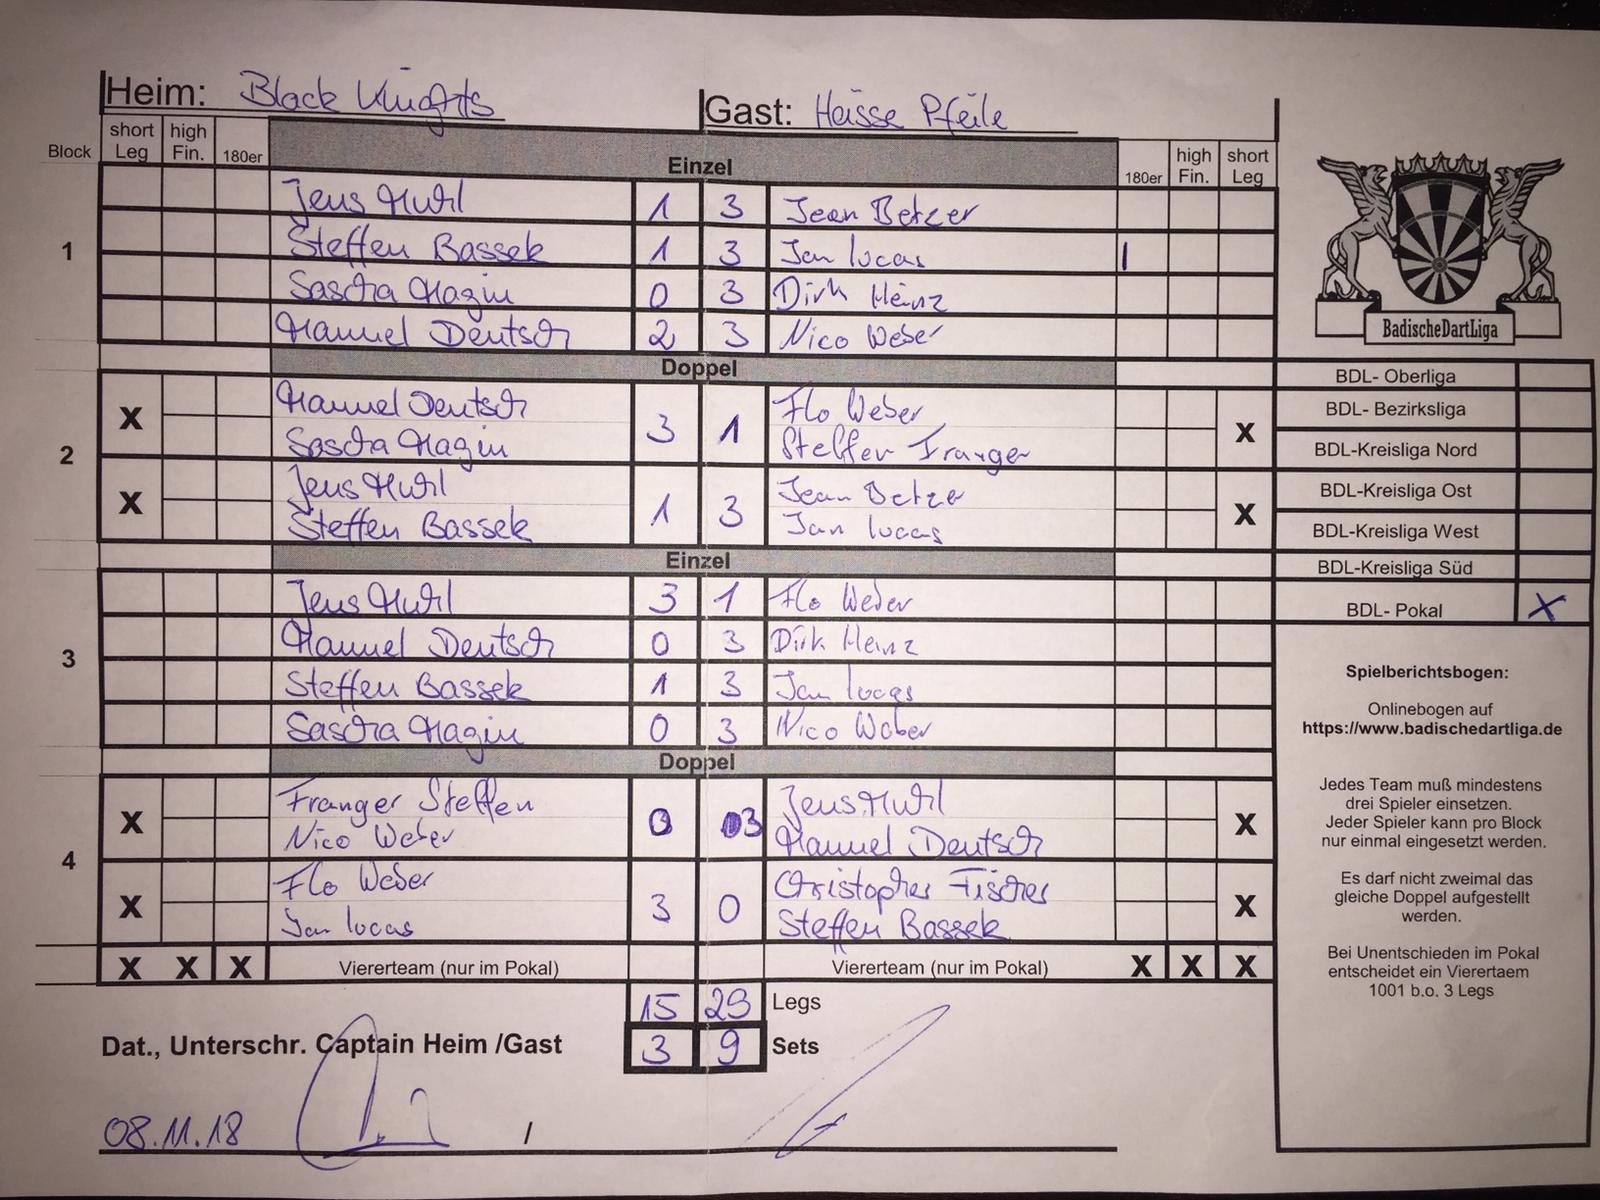 Heim: Black Knights
Gast: Heisse Pfeile
Block short Leg high Fin. 180er Einzel 180er high Fin. short Leg
1
Jens 1 3 Jean Betzer
Steffen Bassek 1 3 Jan Lucas I
Sascha Hagin 0 3 Dirk Heinz
Manuel Deutsch 2 3 Nico Weber
Doppel
2
X Manuel Deutsch 3 1 Flo Weber X
Sascha Hagin Steffen Franger
X Jens 1 3 Jean Betzer X
Steffen Bassek Jan Lucas
Einzel
3
Jens 3 1 Flo Weber
Manuel Deutsch 0 3 Dirk Heinz
Steffen Bassek 1 3 Jan Lucas
Sascha Hagin 0 3 Nico Weber
Doppel
4
X Franger Steffen 0 3 Jens X
Nico Weber Manuel Deutsch
X Flo Weber 3 0 Christopher Fischer X
Jan Lucas Steffen Bassek
X X X Viererteam (nur im Pokal) Viererteam (nur im Pokal) X X X
15 29 Legs
Dat., Unterschr. Captain Heim /Gast 3 9 Sets
08.11.18 /
BadischeDartLiga
BDL- Oberliga
BDL- Bezirksliga
BDL-Kreisliga Nord
BDL-Kreisliga Ost
BDL-Kreisliga West
BDL-Kreisliga Süd
BDL- Pokal X
Spielberichtsbogen:
Onlinebogen auf
https://www.badischedartliga.de
Jedes Team muß mindestens
drei Spieler einsetzen.
Jeder Spieler kann pro Block
nur einmal eingesetzt werden.
Es darf nicht zweimal das
gleiche Doppel aufgestellt
werden.
Bei Unentschieden im Pokal
entscheidet ein Vierertaem
1001 b.o. 3 Legs